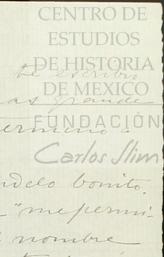 CENTRO DE
ESTUDIOS
DE HISTORIA
DE MÉXICO
FUNDACIÓN
Carlos Slim
te escribo
as grande
bonito.
"me permi-
nombre